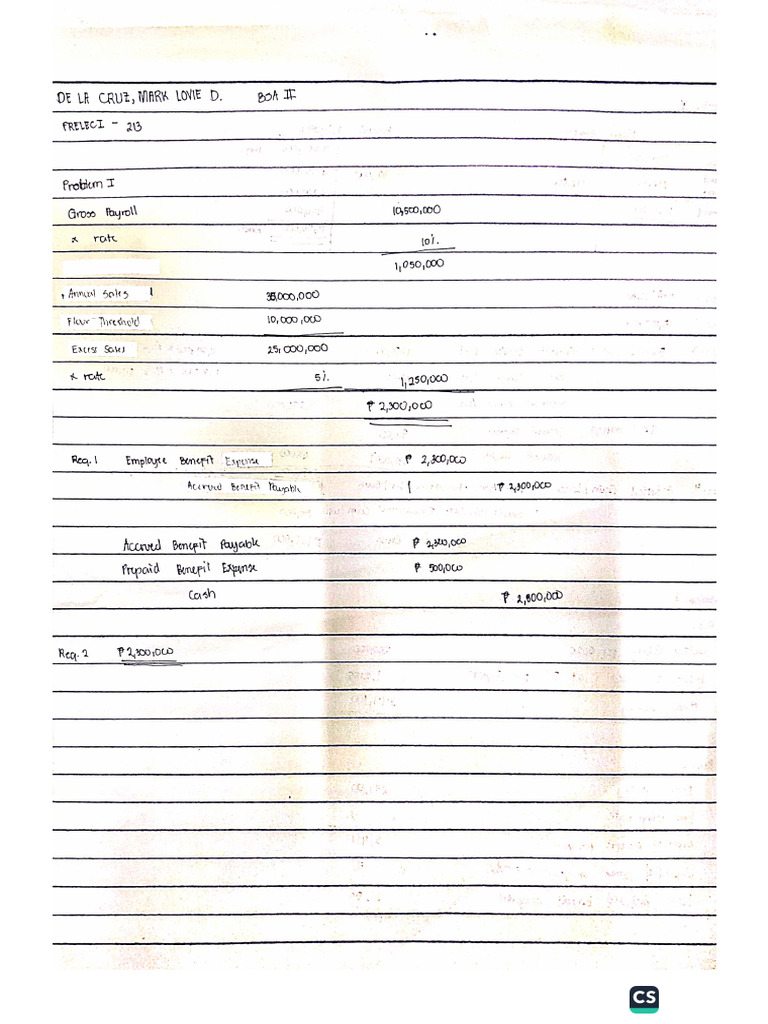 DE LA CRUZ, MARK LOVIE D. BOA II
PRELEC1 - 213
Problem I
Gross Payroll 10,500,000
x rate 10%
1,050,000
Annual Sales 35,000,000
Floor Threshold 10,000,000
Excess Sales 25,000,000
x rate 5% 1,250,000
₱ 2,300,000
Req. 1 Employee Benefit Expense ₱ 2,300,000
Accrued Benefit Payable ₱ 2,300,000
Accrued Benefit Payable ₱ 2,300,000
Prepaid Benefit Expense ₱ 500,000
Cash ₱ 2,800,000
Req. 2 ₱ 2,300,000
CS